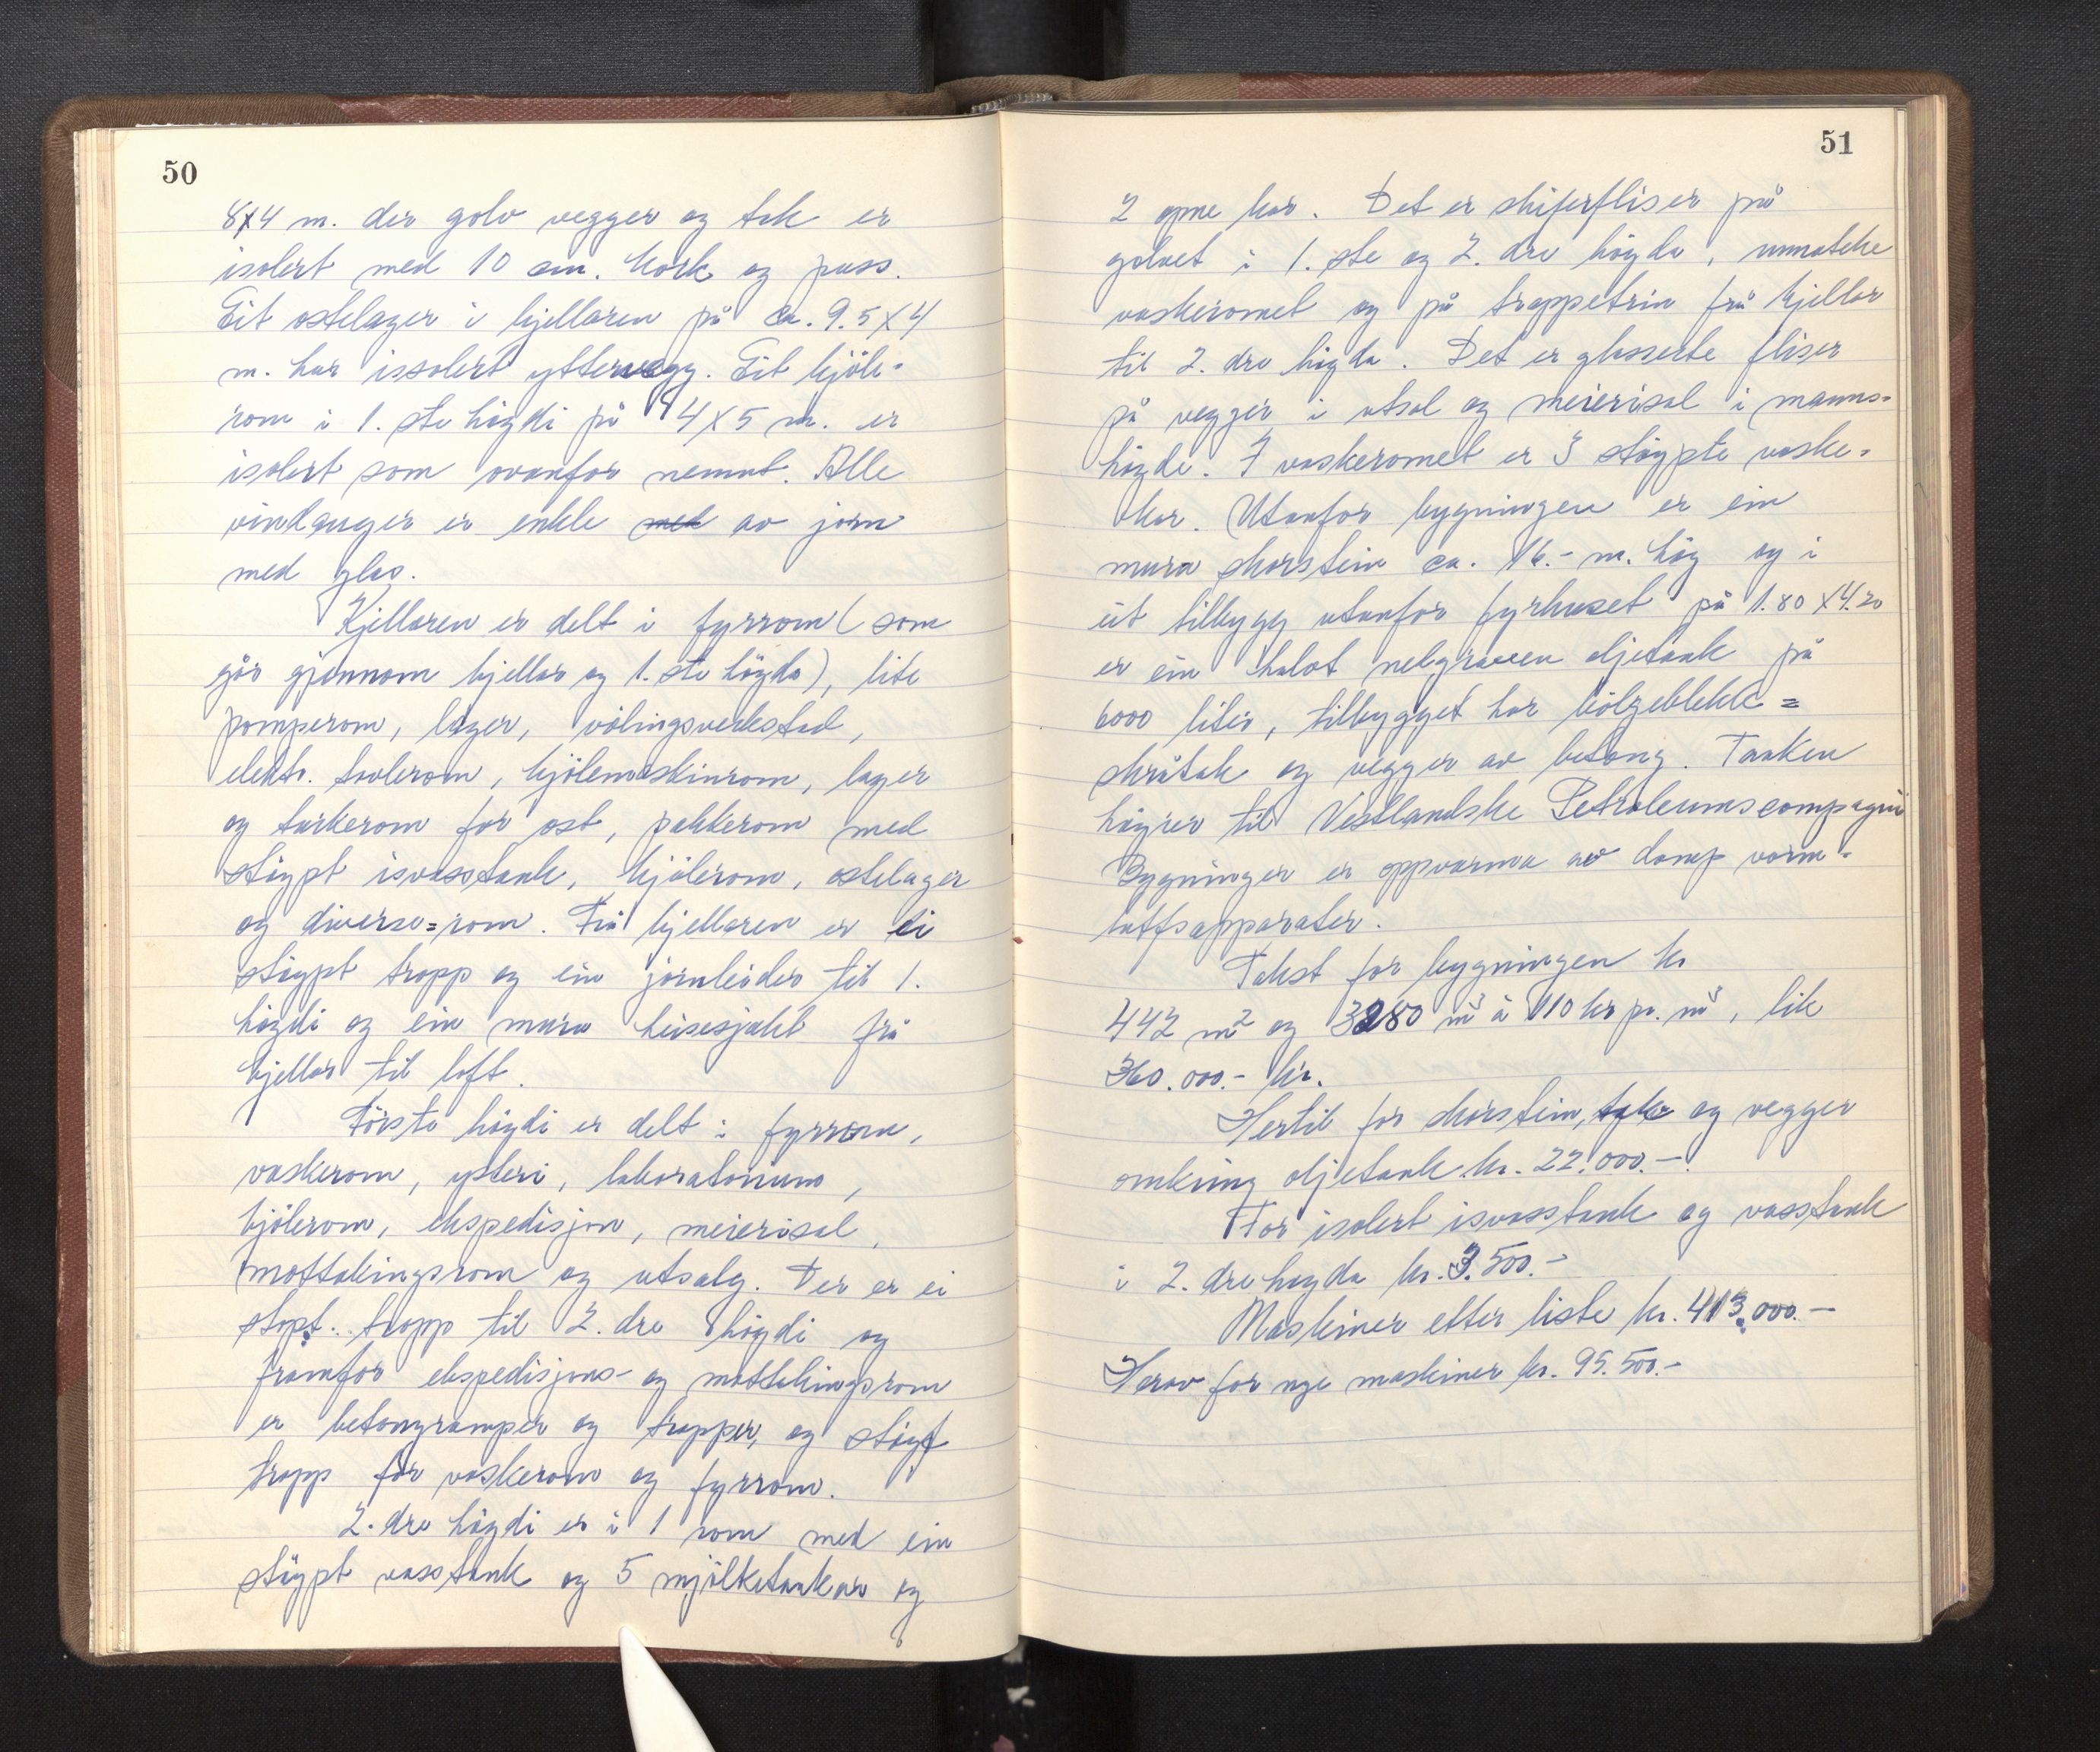 50
8x4 m. der golv vegger og tak er
isolert med 10 cm. kork og puss.
Eit ostelager i kjellaren på ca. 9.5 x 4
m. har issolert yttervegg. Eit kjöle-
rom i 1. ste högdi på 4 x 5 m. er
isolert som ovanfor nemnt. Alle
vindauger er enkle med av jarn
med glas.
Kjellaren er delt i fyrrom (som
går gjennom kjellar og 1. ste högda), lite
pomperom, lager, völingsverkstad,
elektr. tavlerom, kjölemaskinrom, lager
og tørkerom for ost, pakkerom med
stöypt isvasstank, kjölerom, ostelager
og diverse=rom. Frå kjellaren er ei
stöypt tropp og ein jarnleider til 1.
högdi og ein mura heisesjakt frå
kjellar til loft.
Förste högdi er delt i fyrrom,
vaskerom, ysteri, laboratorium,
kjölerom, ekspedisjon, meierisal,
mottakingsrom og utsalg. Der er ei
stöpt. tropp til 2. dre högdi og
framfor ekspedisjons- og mottakingsrom
er betongramper og tropper, og stöypt
tropp for vaskerom og fyrrom.
2. dre högdi er i 1 rom med ein
stöypt vasstank og 5 mjölketankar og
51
2 opne kar. Det er skiferfliser på
golvet i 1. ste og 2. dre högda, unnateke
vaskeromet og på troppetrin frå kjellar
til 2. dre högda. Det er glasserte fliser
på vegger i utsal og meierisal i manns-
högde. I vaskeromet er 3 stöypte vaske-
kar. Utanfor bygningen er ein
mura skorstein ca. 16.- m. hög og i
eit tilbygg utanfor fyrhuset på 1.80 x 4.20
er ein halvt nedgraven oljetank på
6000 liter, tilbygget har bölgeblekk=
skråtak og vegger av betong. Tanken
höyrer til Vestlandske Petroleumscompagni
Bygningen er oppvarma av damp varm-
luftsapparater.
Takst for bygningen kr
442 m² og 3280 m³ à 110 kr pr. m³, lik
360.000.- kr.
Hertil for skorstein, tak og vegger
omkring oljetank kr. 22.000.-
For isolert isvasstank og vasstank
i 2. dre högda kr. 3.500.-
Maskiner etter liste kr. 413.000.-
Herav for nye maskiner kr. 95.500.-